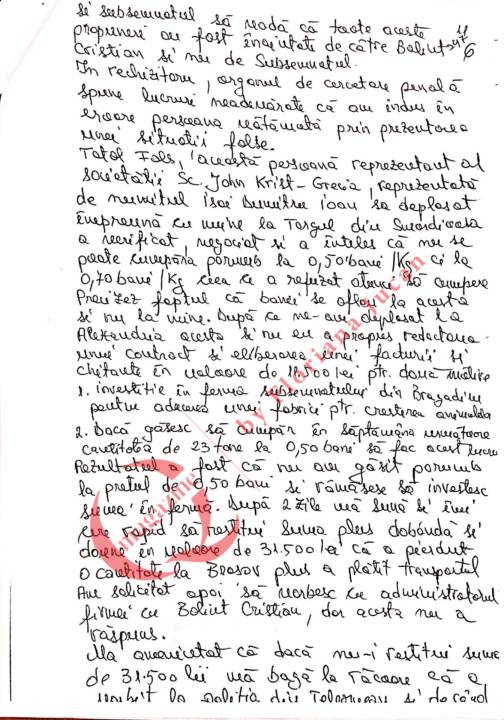 si subsemnatul să vadă că toate aceste
propuneri au fost înaintate de către Baliut
Cristian si nu de Subsemnatul.
În rechizitoriu, organul de cercetare penală
spune lucruri neadevărate că am indus în
eroare persoana vătămată prin prezentarea
unei situatii false.
Total Fals, această persoană reprezentant al
societătii Sc. John Krist-Grecia, reprezentată
de numitul Isac Dumitru Ioan s-a deplasat
împreună cu mine la Târgul din
a verificat, negociat si a înteles că nu se
poate cumpăra porumb la 0,50 bani/Kg ci la
0,70 bani/Kg ceea ce a refuzat atunci să cumpere
Precizez faptul că banii se aflau la acesta
si nu la mine. După ce ne-am deplasat la
Alexandria acesta si nu eu a propus redactarea
unui contract si eliberarea unei facturi si
chitante în valoare de 11.500 lei ptr. două
1. investitie în ferma subsemnatului din Bragadiru
pentru aducerea unei fabrici ptr. cresterea animalelor
2. Dacă găsesc să cumpăr în săptămâna următoare
cantitatea de 23 tone la 0,50 bani să fac acest lucru
Rezultatul a fost că nu am găsit porumb
la pretul de 0,50 bani si rămăsese să investesc
suma în fermă. După 2 zile mă sună si îmi
cere rapid să restitui suma plus dobândă si
daune în valoare de 31.500 lei că a pierdut
o cantitate la Brasov plus a plătit transportul
Am solicitat apoi să vorbesc cu administratorul
firmei cu Baliut Cristian, dar acesta nu a
răspuns.
M-a amenintat că dacă nu-i restitui suma
de 31.500 lei mă bagă la răcoare că a
vorbit la politia din si de când
magazine by Floriana Jucan